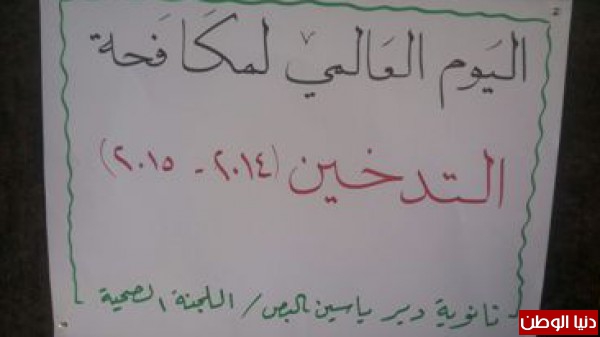 اليَوم العَالمي لمكَافَحة
التدخين (٢٠١٤ - ٢٠١٥)
ثانوية دير ياسين البص / اللجنة الصحية
دنيا الوطن